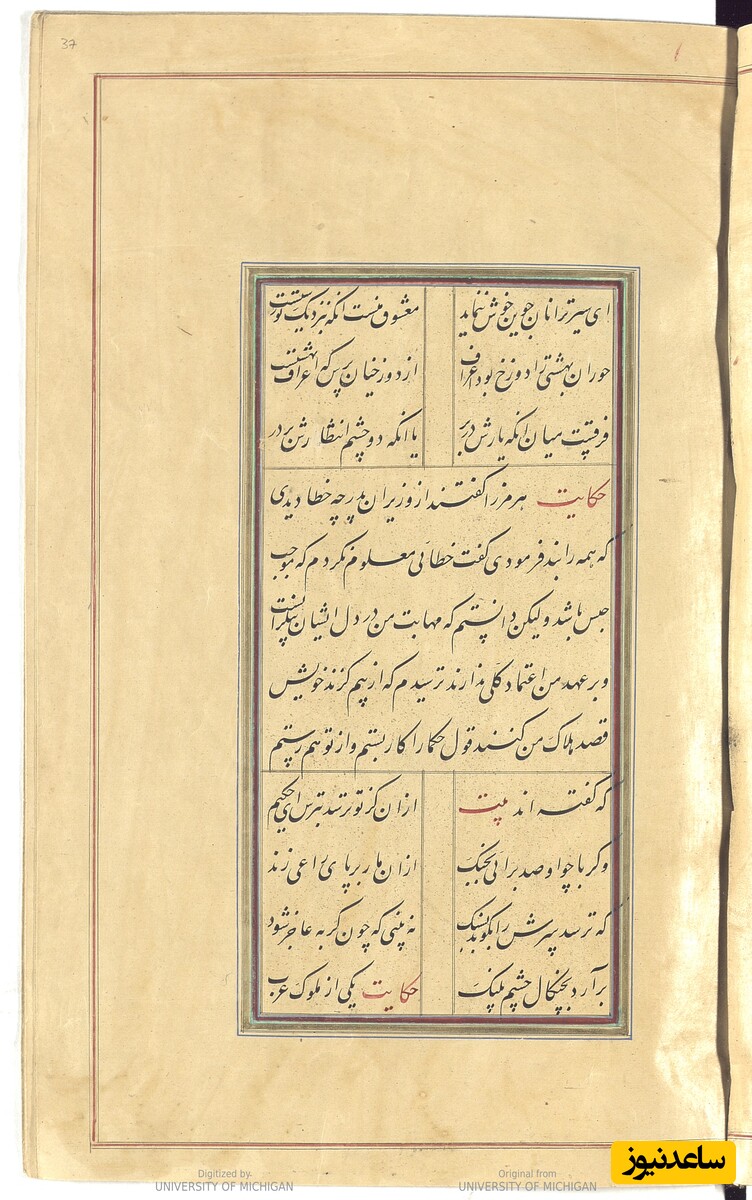 37
ای سیر ترا نان جوین خوش ننماید معشوق منست آنکه نزدیک تو زشتست
حوران بهشتی را دوزخ بود اعراف از دوزخیان پرس که اعراف بهشتست
فرقست میان آنکه یارش در بر یا آنکه دو چشم انتظارش بر در
حکایت هرمز را گفتند از وزیران پدر چه خطا دیدی
که همه را بند فرمودی گفت خطائی معلوم نکردم که موجب
حبس باشد ولیکن دانستم که مهابت من در دل ایشان بیکرانست
و بر عهد من اعتماد کلی ندارند ترسیدم که از بیم گزند خویش
قصد هلاک من کنند قول حکما را کار بستم و از تو هم رستم
که گفته اند بیت ازان کز تو ترسد بترس ای حکیم
وگر با چو او صد برائی بجنگ ازان مار بر پای راعی زند
که ترسد سرش را بکوبد بسنگ نه بینی که چون گربه عاجز شود
برآرد بچنگال چشم پلنگ حکایت یکی از ملوک عرب
ساعدنیوز
Digitized by Original from
UNIVERSITY OF MICHIGAN UNIVERSITY OF MICHIGAN